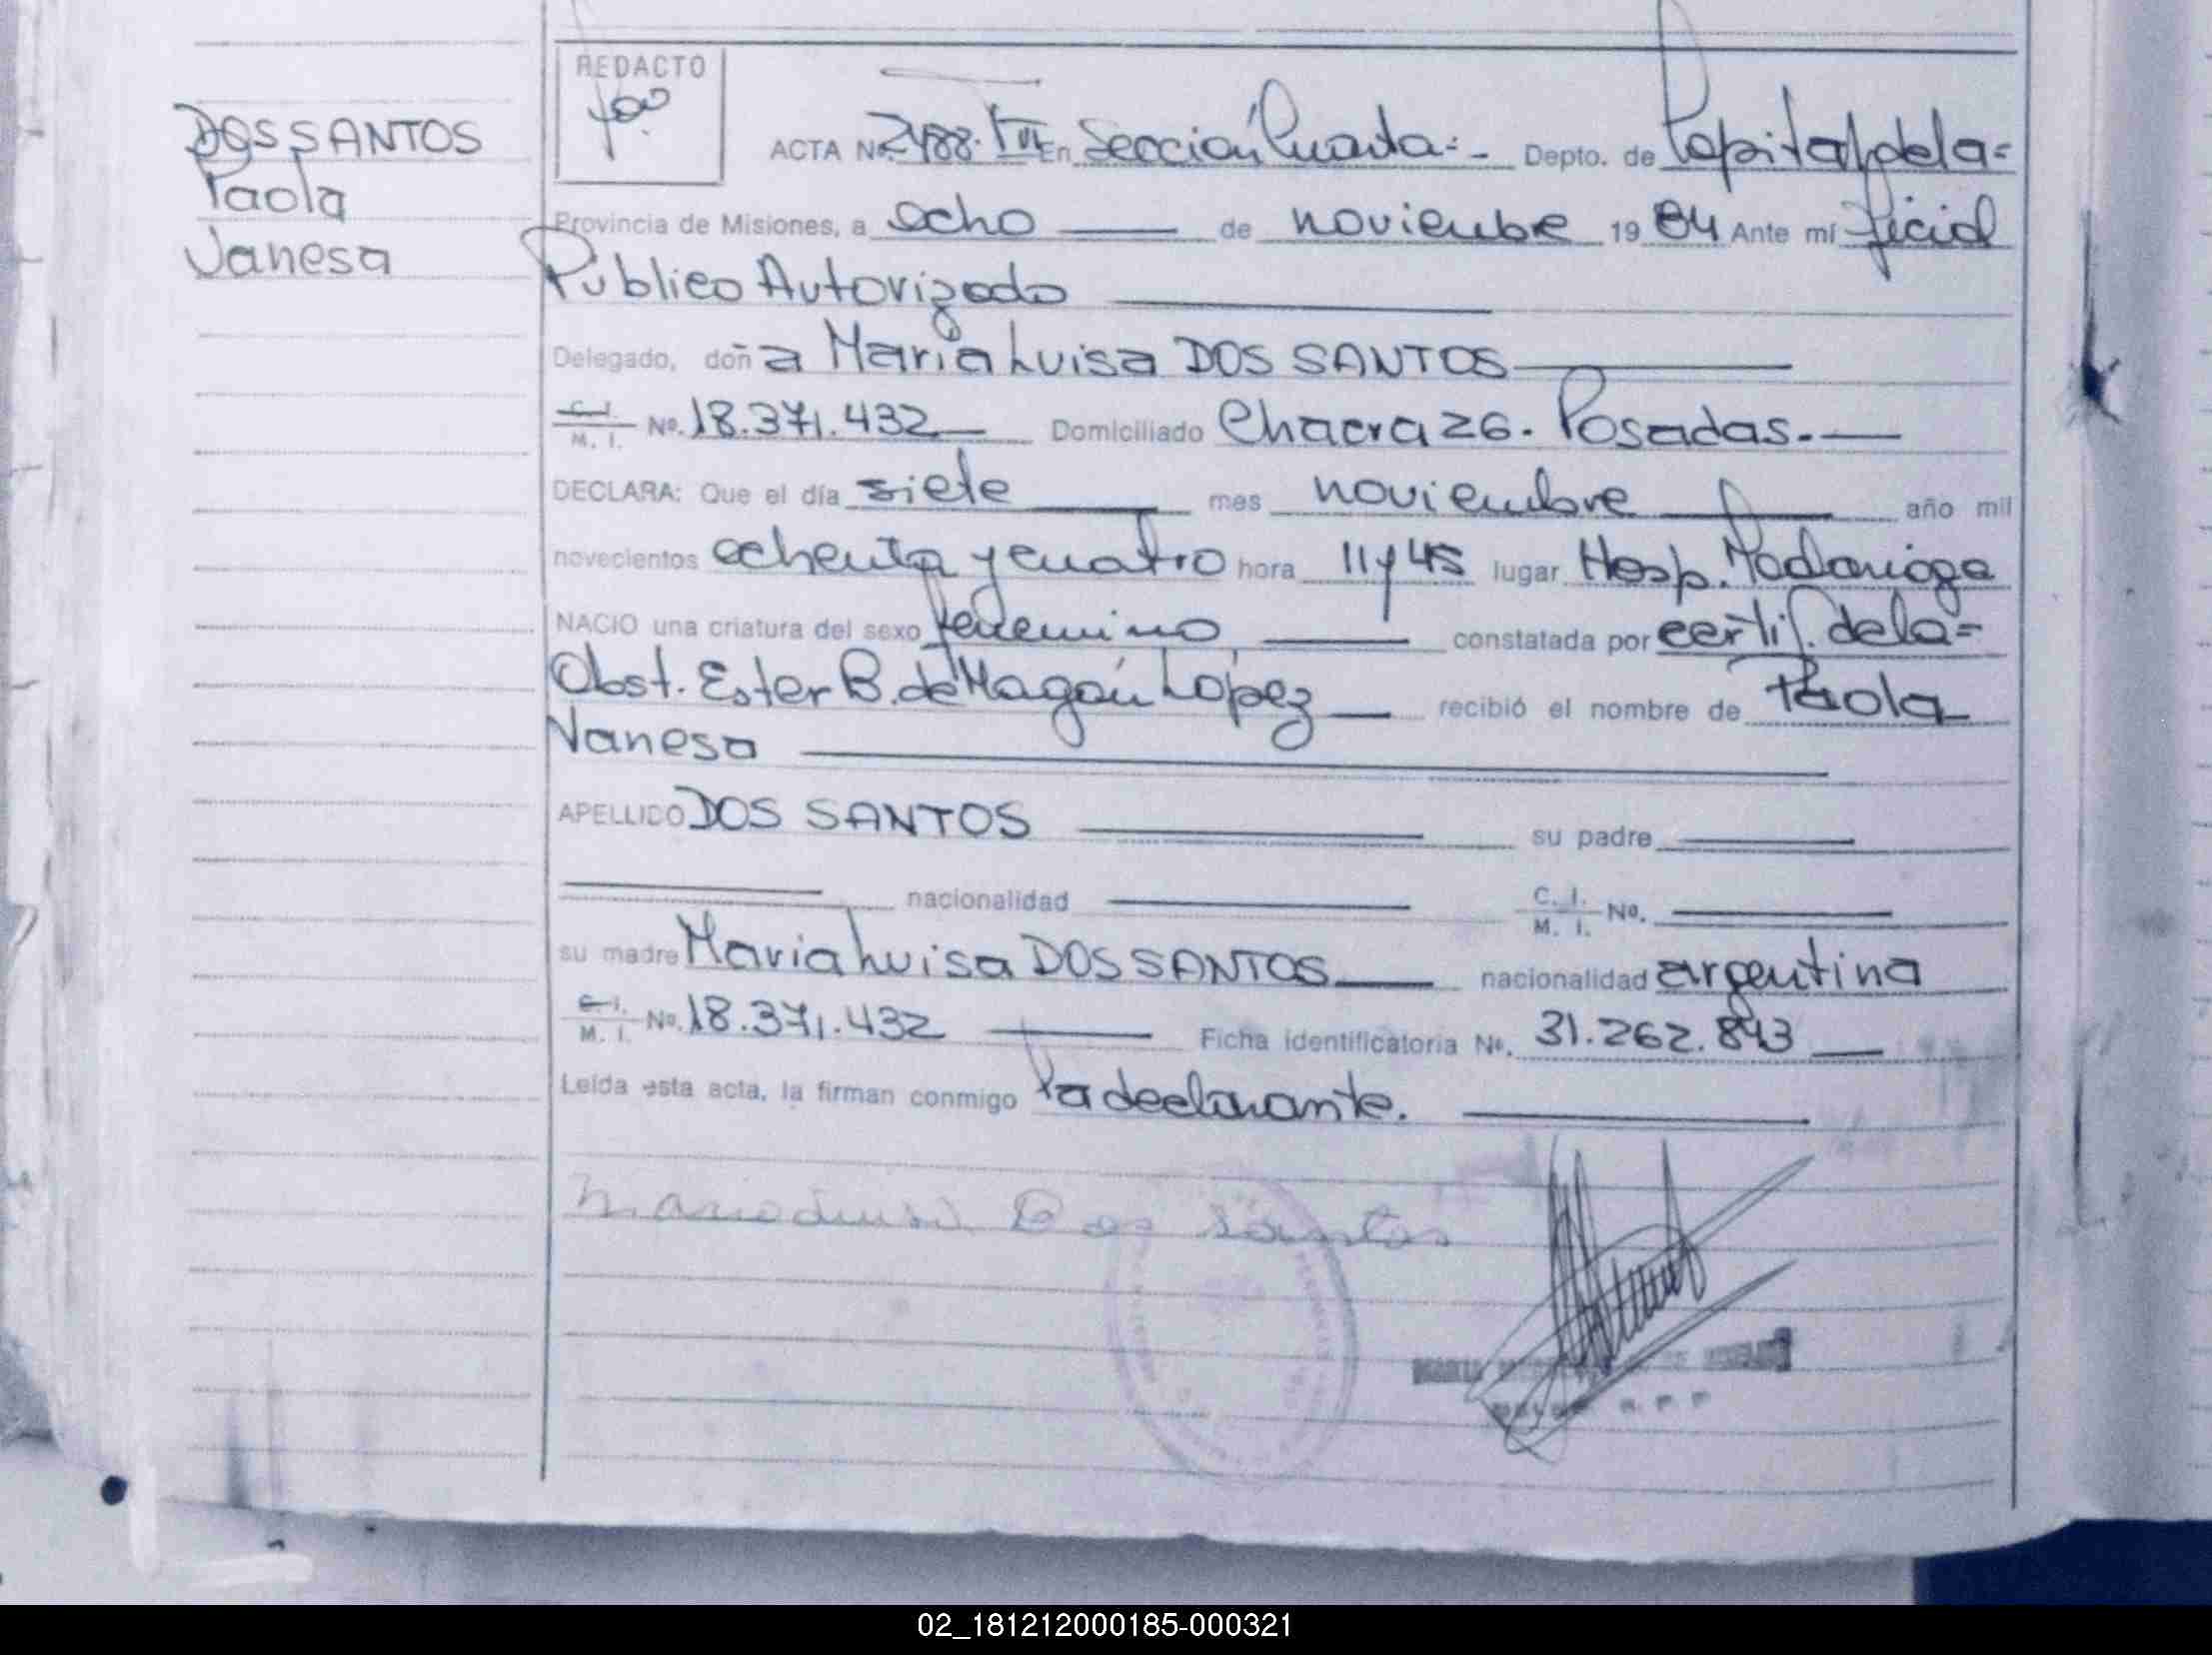 DOS SANTOS
Paola
Vanesa
REDACTO
ACTA No. 2488. En Sección Cuarta.- Depto. de Capital de la=
Provincia de Misiones, a ocho de noviembre 1984 Ante mí ficial
Público Autorizado
Delegado, doña Maria Luisa DOS SANTOS
C. I. M. I. No. 18.371.432 Domiciliado Chacra 26. Posadas.
DECLARA: Que el día siete mes noviembre año mil
novecientos ochenta y cuatro hora 11 y 45 lugar Hosp. Madariaga
NACIO una criatura del sexo femenino constatada por certif. de la=
Obst. Ester B. de Magán López recibió el nombre de Paola
Vanesa
APELLIDO DOS SANTOS su padre
nacionalidad C. I. M. I. No.
su madre Maria Luisa DOS SANTOS nacionalidad argentina
C. I. M. I. No. 18.371.432 Ficha identificatoria No. 31.262.843
Leída esta acta, la firman conmigo la declarante.
Dos Santos
02_181212000185-000321